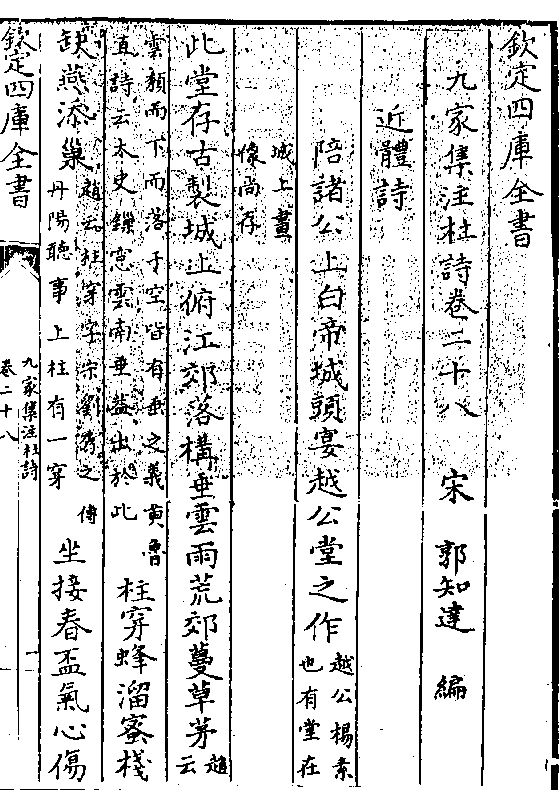 欽定四庫全書
九家集注杜詩卷二十八
宋 郭知達 編
近體詩
陪諸公上白帝城頭宴越公堂之作
越公楊素
也有堂在
城上畫
像尚存
此堂存古製城上俯江郊落構垂雲雨荒郊蔓草茅
趙
云
雲頹而下而落于空皆有垂之義黃魯
直詩云太史鏁窓雲雨垂蓋出於此
柱穿蜂溜蜜棧
缺燕添巢
趙云柱穿字宋劉寡之傳
丹陽聽事上柱有一穿
坐接春盃氣心傷
欽定四庫全書
九家集注杜詩
卷二十八
一